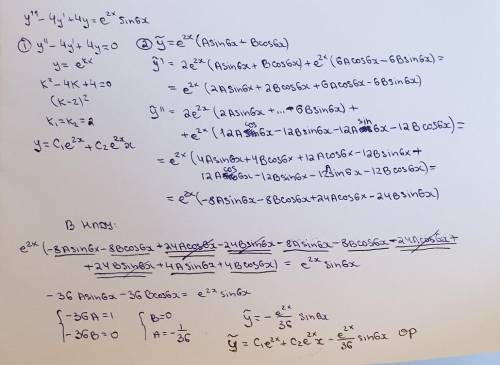 y'' - 4y' + 4y = e^{2x} sin6x
① y'' - 4y' + 4y = 0
y = e^{kx}
k² - 4k + 4 = 0
(k-2)²
k₁ = k₂ = 2
y = C₁e^{2x} + C₂e^{2x}x
② ỹ = e^{2x}(Asin6x + Bcos6x)
ỹ' = 2e^{2x}(Asin6x + Bcos6x) + e^{2x}(6Acos6x - 6Bsin6x) =
= e^{2x}(2Asin6x + 2Bcos6x + 6Acos6x - 6Bsin6x)
ỹ'' = 2e^{2x}(2Asin6x + ... - 6Bsin6x) +
+ e^{2x}(12Acos6x - 12Bsin6x - 12Asin6x - 12Bcos6x) =
= e^{2x}(4Asin6x + 4Bcos6x + 12Acos6x - 12Bsin6x +
12Acos6x - 12Bsin6x - 12Asin6x - 12Bcos6x) =
= e^{2x}(-8Asin6x - 8Bcos6x + 24Acos6x - 24Bsin6x)
В НЛДУ:
e^{2x}(-8Asin6x - 8Bcos6x + 24Acos6x - 24Bsin6x - 8Asin6x - 8Bcos6x - 24Acos6x +
+ 24Bsin6x + 4Asin6x + 4Bcos6x) = e^{2x} sin6x
-36Asin6x - 36Bcos6x = e^{2x} sin6x
{ -36A = 1 { B = 0 ỹ = -e^{2x}/36 sin6x
-36B = 0 A = -1/36 ỹ = C₁e^{2x} + C₂e^{2x}x - e^{2x}/36 sin6x ор